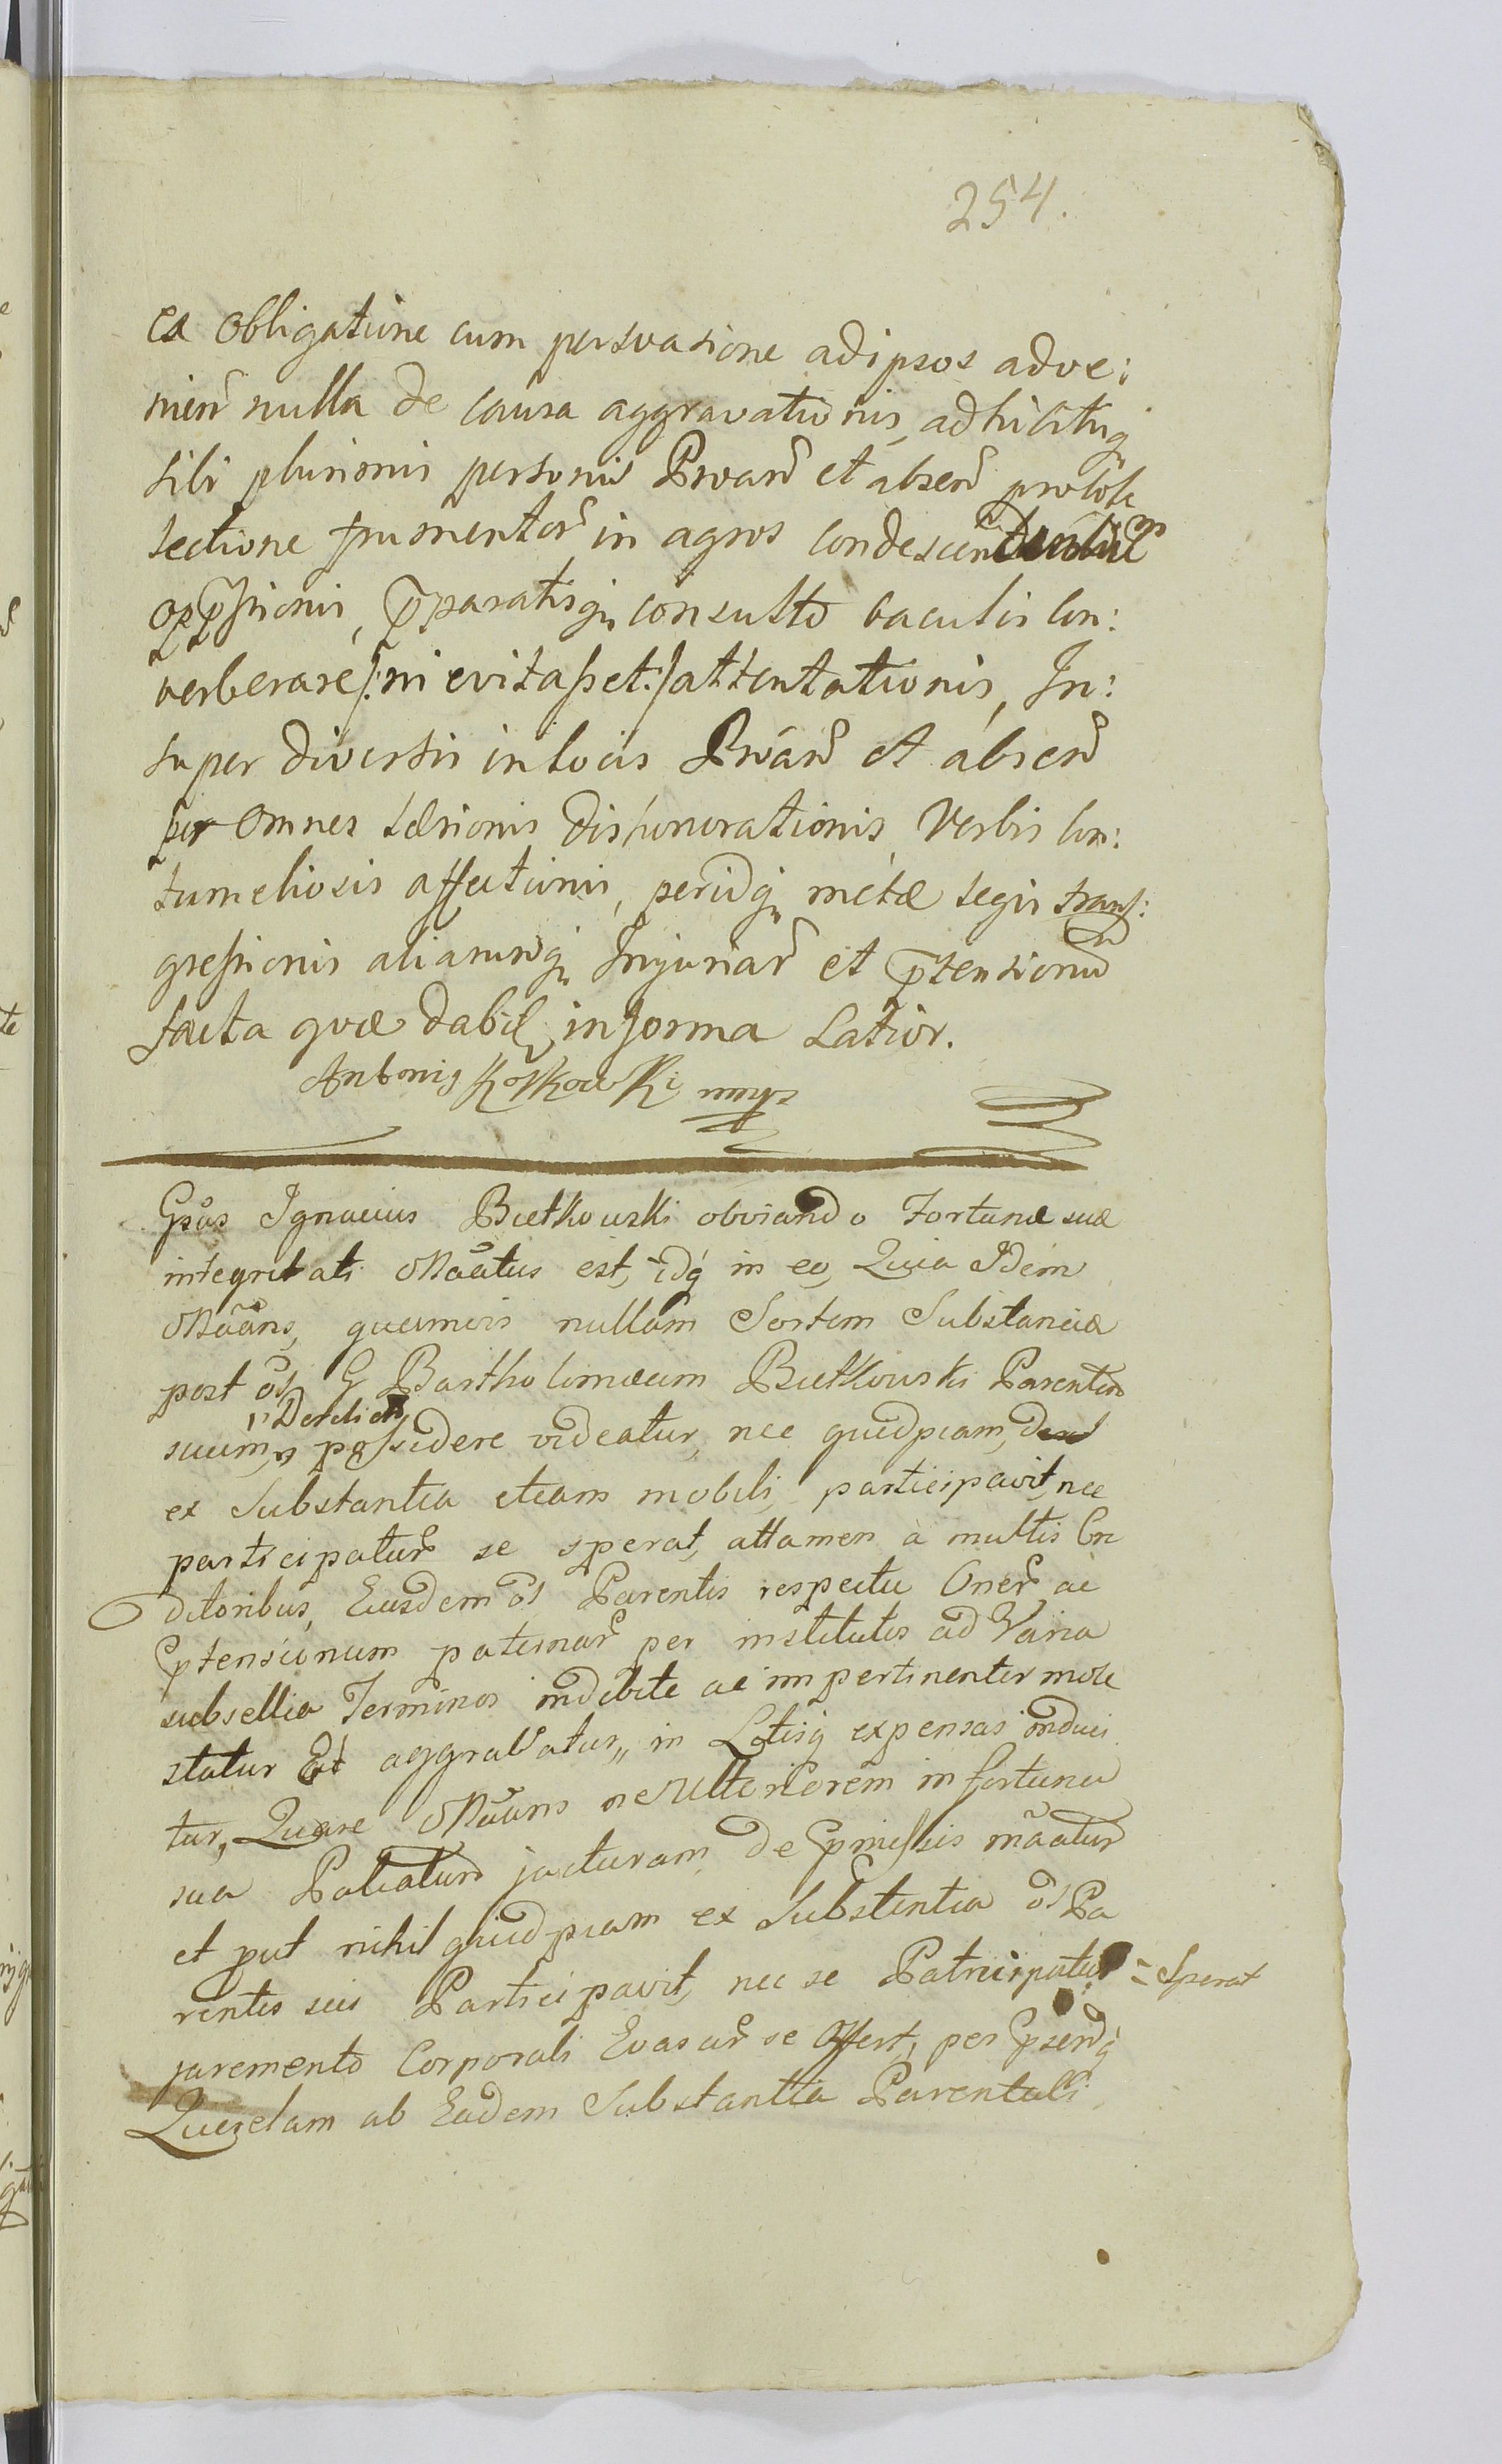 254.
ea obligatione cum persvasione ad ipsos adve:
nien͠ nulla de causa aggravationis, adhibitisq̃
sibi plurimis personis Prwar͠ et absen͠ pro
sectione frumentor͠ in agros condescen
opp͠ssionis, p͠paratisq̃ consulto baculis con:
verberare /: ni evitasset :/ attentationis, In:
super diversis in locis Prwar͠ et absen͠
per omnes læsionis dishonorationis Verbis con:
tumeliosis affectionis, peridq̃ metæ legis trans:
gressionis aliarumq̃ Injuriar͠ et p͠tensionu͠
facta quæ dabit in forma Latior.
Antonig Koskowski mmp
Gsũs Ignacius Bietkowski obviando Fortunæ suæ
integritati Mãatus est, idq́ in eo, Quia Idem
Mãans, quamvis nullam Sortem Substanciæ
post õl G Bartholomæum Bietkowski Parentem
suum, Derelict possidere videatur, nec quidpiam,
ex Substantia etiam mobili, participavit, nec
participatur͠ se sperat, attamen à multis Cre
ditoribus, Eiusdem õl Parentis respectu Oner͠ ac
Ptensionum paternar͠ per institutos ad Varia
subsellia Terminos indebite ac impertinenter mole
statur Et aggravatur, in Litisq̃ expensas induci
tur, Quare Mãans ne Ulteriorem in fortuna
sua Patiatur jacturam, de Pmissis mãatur
et put nihil quidpiam ex Substentia õl Pa
rentis sui Participavit, nec se Patricipatur = Sperat
juremento Corporali Evasur͠ se Offert, per Psen͠q̃
Querelam ab Eadem Substantia Parentali